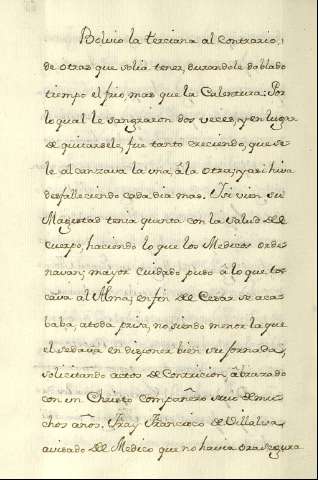 Bolvio la terciana al contrario,
de otras que solia tener, durandole doblado
tiempo el frio, mas que la Calentura: Por
lo qual le sangraron dos veces, y en lugar
de quitarsele, fue tanto creciendo, que se
le alcanzava la una, â la otra, y asi hiva
desfalleciendo cada dia mas. I si vien su
Magestad tenia quenta con la salud del
cuerpo, haciendo lo que los Medicos orde
navan; mayor cuidado puso â lo que to
cava al Alma; en fin el Cesar se aca
baba, a toda prisa, no siendo menor la que
el se dava en disponer bien su jornada,
solicitando actos de Contricion, abrazado
con un Christo compañero suio de mu
chos años. Fray Francisco de Villalva,
avisado del Medico que no havia ora segura